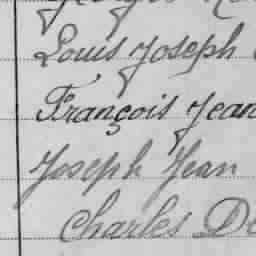 Louis Joseph
François Jean
Joseph Jean
Charles De